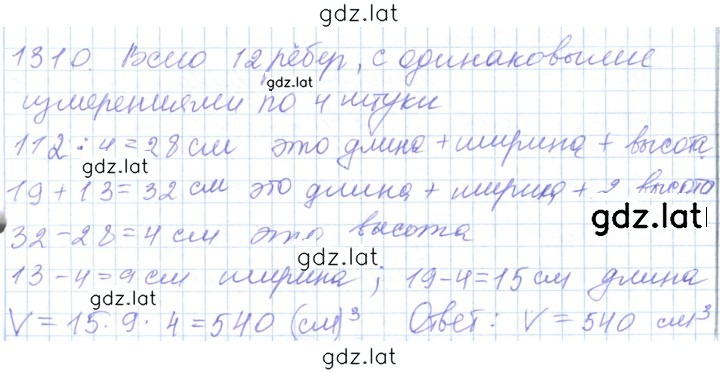 gdz.lat
1310. Всего 12 рёбер, с одинаковыми
gdz.lat
измерениями по 4 штуки
112 : 4 = 28 см это длина + ширина + высота
gdz.lat
19 + 13 = 32 см это длина + ширина + 2 высота
gdz.lat
32 - 28 = 4 см это высота
13 - 4 = 9 см ширина; 19 - 4 = 15 см длина
gdz.lat
V = 15 · 9 · 4 = 540 (см)³ Ответ: V = 540 см³
gdz.lat